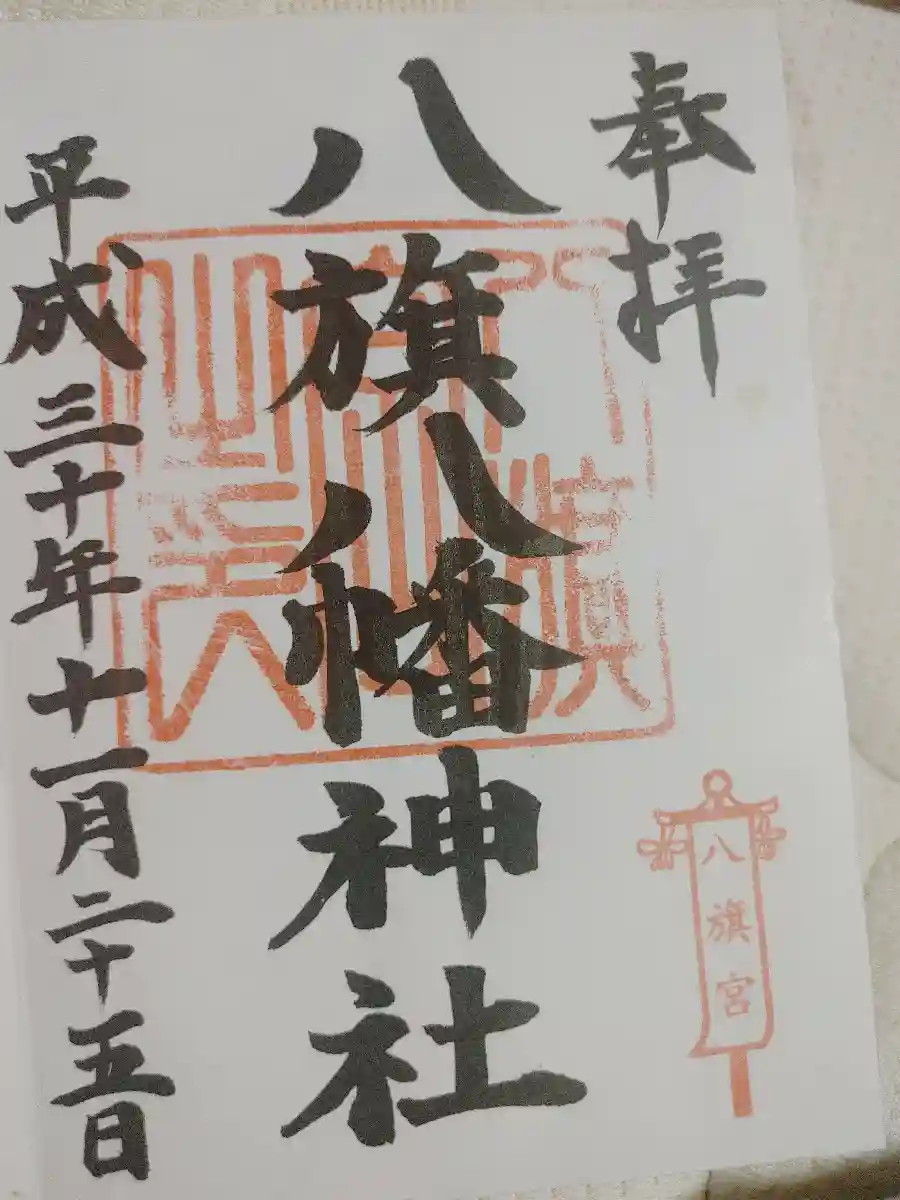 奉拝
八旗八幡神社
八旗宮
平成三十年十一月二十五日